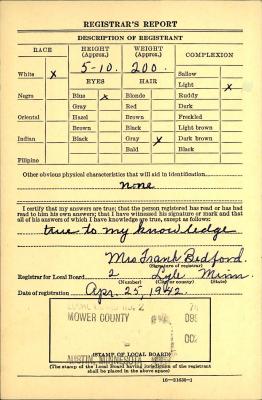 REGISTRAR'S REPORT
DESCRIPTION OF REGISTRANT
RACE HEIGHT (Approx.) WEIGHT (Approx.) COMPLEXION
5-10. 200. Sallow
White x EYES HAIR Light x
Negro Blue x Blonde Ruddy
Gray Red Dark
Oriental Hazel Brown Freckled
Brown Black Light brown
Indian Black Gray x Dark brown
Bald Black
Filipino
Other obvious physical characteristics that will aid in identification
none
I certify that my answers are true; that the person registered has read or has had
read to him his own answers; that I have witnessed his signature or mark and that
all of his answers of which I have knowledge are true, except as follows:
true to my knowledge
Mrs Frank Bedford.
(Signature of registrar)
Registrar for Local Board 2 Lyle Minn
(Number) (City or county) (State)
Date of registration Apr. 25, 1942
NO. 2
MOWER COUNTY
AUSTIN, MINNESOTA
(STAMP OF LOCAL BOARD)
(The stamp of the Local Board having jurisdiction of the registrant
shall be placed in the above space)
16-21630-1